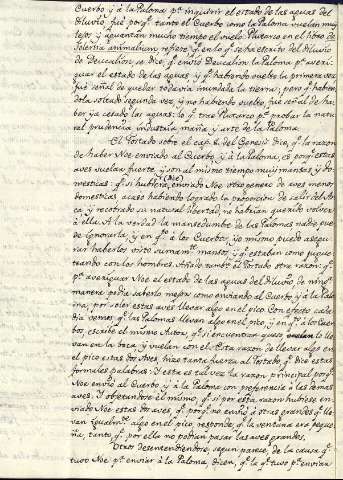 Cuervo y à la Paloma pª inquirir el estado de las aguas del
Diluvio, fué porqᵉ tanto el Cuervo como la Paloma vuelan muy
lejos, y aguantan mucho tiempo el vuelo. Plutarco en el libro de
Solertia animalium refiere, qᵉ en lo qᵉ se ha escrito del Diluvio
de Deucalion, se dice, qᵉ envio Deucalion la Paloma pª averi-
guar el estado de las aguas, y qᵉ habiendo vuelto la primera vez
fué señal de quedar todavia inundada la tierra; pero qᵉ habien-
dola soltado segunda vez, y no habiendo vuelto, fue señal de ha-
ber ya cesado las aguas: lo qᵉ trae Plutarco pª probar la natu-
ral prudencia, industria, maña, y arte de la Paloma.
El Tostado sobre el cap. 8. del Genesis dice, qᵉ la razon
de haber Noe enviado al Cuervo, y à la Paloma, es porqᵉ estas
aves vuelan fuerte, y son al mismo tiempo muy mansas, y do-
mesticas: qᵉ si hubiera (Noe) enviado otro genero de aves menos
domesticas, acaso habiendo logrado la proporcion de salir del Ar-
ca, y recobrado su natural libertad, no habrian querido volver
à ella. A la verdad la mansedumbre de las Palomas nadie pue-
de ignorarla, y en qᵗᵒ à los Cuervos, yo mismo puedo asegu-
rar haberlos visto sumamᵗᵉ mansos, y qᵉ estaban como jugue-
teando con los hombres. Añade tambⁿ el Tostado otra razon: qᵉ
pª averiguar Noe el estado de las aguas del Diluvio de ningª
manera podia saberlo mejor como enviando al Cuervo, y à la Palo-
ma, por soler estas aves llevar algo en el pico. Con efecto cada
dia vemos qᵉ las Palomas llevan algo en el pico, y en qᵗᵒ à los Cuer-
vos, escribe el mismo Autor, qᵉ si encuentran queso, lo lle-
van en la boca, y vuelan con el. Esta razon de llevar algo en
el pico estas dos Aves, hizo tanta fuerza al Tostado, qᵉ dice estas
formales palabras: Y esta es tal vez la razon principal porqᵉ
Noe envió al Cuervo, y à la Paloma con preferencia à las demas
aves. Y objetandose él mismo, qᵉ si por esta razon hubiese en-
viado Noe estas dos aves, porqᵉ no envió à otras grandes qᵉ lle-
van algo en el pico, responde, qᵉ la ventana era peque-
ña, tanto, qᵉ por ella no podian pasar las aves grandes.
Otros desentendiendose, segun parece, de la causa qᵉ
tuvo Noe pª enviar à la Paloma, dicen, qᵉ la qᵉ tuvo pª enviar